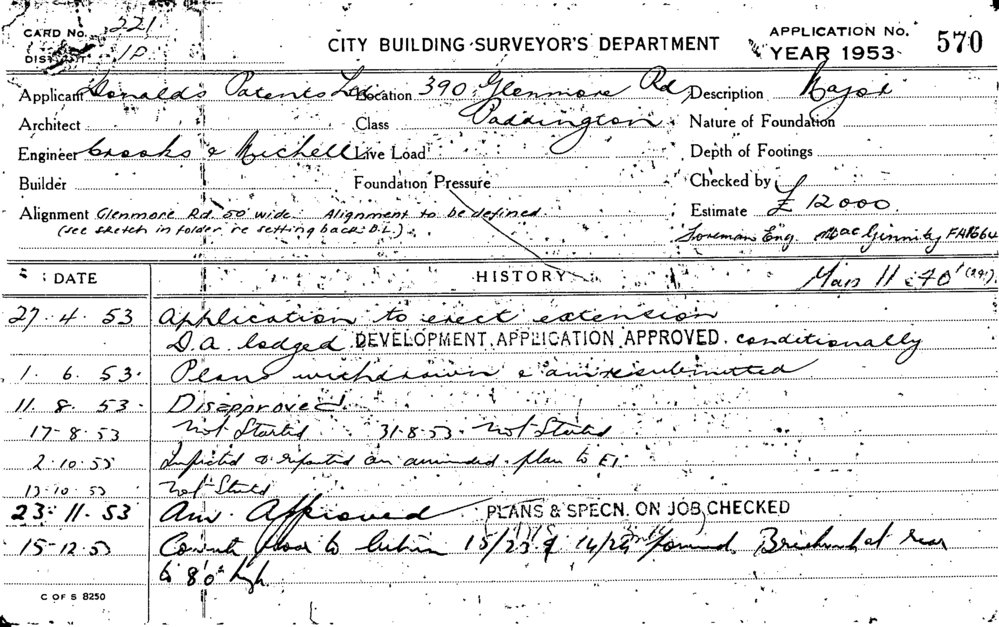 CARD No. 221
DISTRICT 1D
CITY BUILDING SURVEYOR'S DEPARTMENT
APPLICATION No.
YEAR 1953
570
Applicant Donalds Patents Ltd Location 390 Glenmore Rd, Description Major
Architect Class Paddington Nature of Foundation
Engineer Crooks & Michell Live Load Depth of Footings
Builder Foundation Pressure Checked by
Alignment Glenmore Rd. 50' wide. Alignment to be defined Estimate £12000
(see sketch in folder re setting back B.L.) Foreman Eng. MacGinnity
DATE HISTORY 11
27.4.53 Application to erect extension
D.A. lodged DEVELOPMENT APPLICATION APPROVED. conditionally
1.6.53. Plans withdrawn & resubmitted
11.8.53. Disapproved.
17-8.53 Not Started 31-8-53. Not Started
2.10.53 Inspected & reported on amended plan to
13-10.53 Not Started
23.11.53 Am. Approved PLANS & SPECN. ON JOB CHECKED
15-12.53 floor to 15/23 & 14/24 poured. Brickwork at rear
to 8'0" high.
C OF S 8250